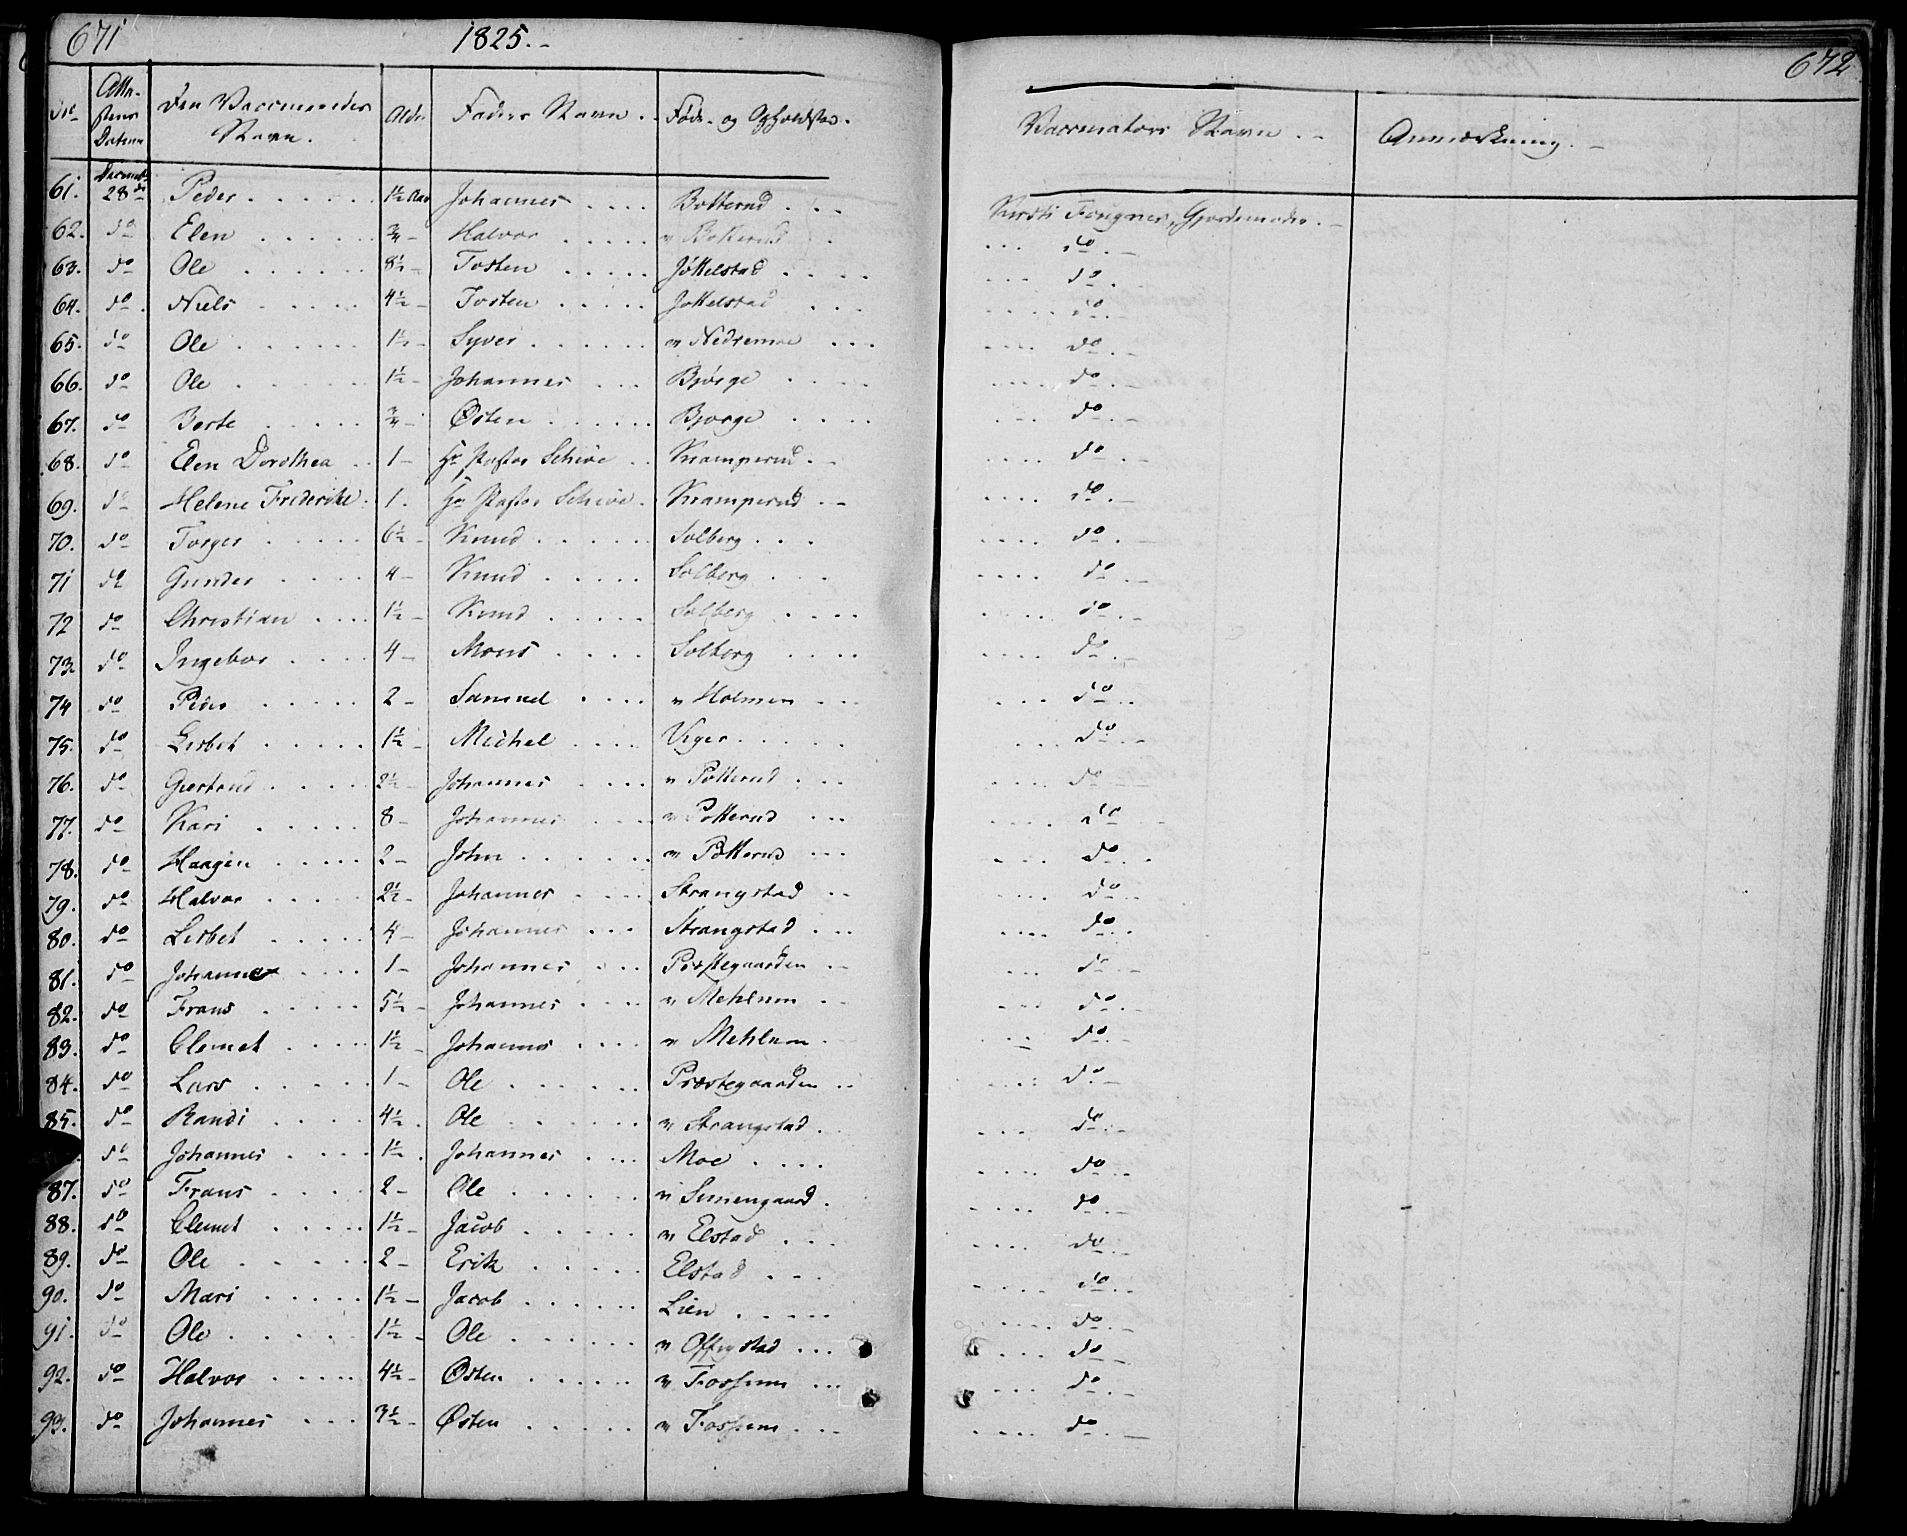 671 1825.- 672
No Atte- stens Datum Den Vaccineredes Navn. Alder Faders Navn. Føde- og Opholdsted. Vaccinators Navn.- Anmærkning.-
61. 28de Peder 1½ Aar Johannes Botterud Kirsti Fougner, Gjordemoder.-
62. do Elen ¾ - Halvor " Botterud do.-
63. do Ole 8½ - Tosten Jøttelstad do.
64. do Niels 4½ - Tosten Jøttelstad do.-
65. do Ole 1½ - Syver " Nedremoe do.-
66. do Ole 1½ - Johannes Bjørge do.-
67. do Berte ¾ - Østen Bjørge do.-
68. do Elen Dorothea 1 - Hr Pastor Schiøe Kramperud. do.-
69. do Helene Frederike 1. Hr Pastor Schiøe Kramperud do.-
70. do Torger 6½ - Knud Solberg do.-
71 do Gunder 4 - Knud Solberg do.-
72 do Christian 1½ - Knud Solberg do.-
73 do Ingebor 4 - Mons Solberg do.-
74 do Peder 2 - Samuel " Holmen do.
75. do Lisbet 1½ - Michel Viger do.-
76. do Giertrud 2½ - Johannes " Potterud do
77. do Kari 8 - Johannes " Potterud do.-
78. do Haagen 2 - John " Potterud do.
79. do Halvor 2½ - Johannes Strangstad do.
80. do Lisbet 4 - Johannes Strangstad do.
81. do Johanne 1 - Johannes Præstegaarden do.-
82. do Frans 5½ - Johannes " Mehlum do.-
83. do Clemet 1½ - Johannes " Mehlum do.-
84. do Lars 1 - Ole Præstegaarden do.-
85. do Randi 4½ . Ole " Strangstad do.-
do Johannes 1½ . Johannes Moe do.-
87. do Frans 2 - Ole " Simengaard. do.-
88. do Clemet 1½ - Jacob " Elstad do.-
89. do Ole 2 - Erik Elstad do.-
90. do Mari 1½ - Jacob Lien do.-
91. do Ole 1½ - Ole " Offigstad do.-
92. do Halvor 4½ - Østen " Fossum do.-
93. do Johannes 3½ - Østen " Fossum do.-